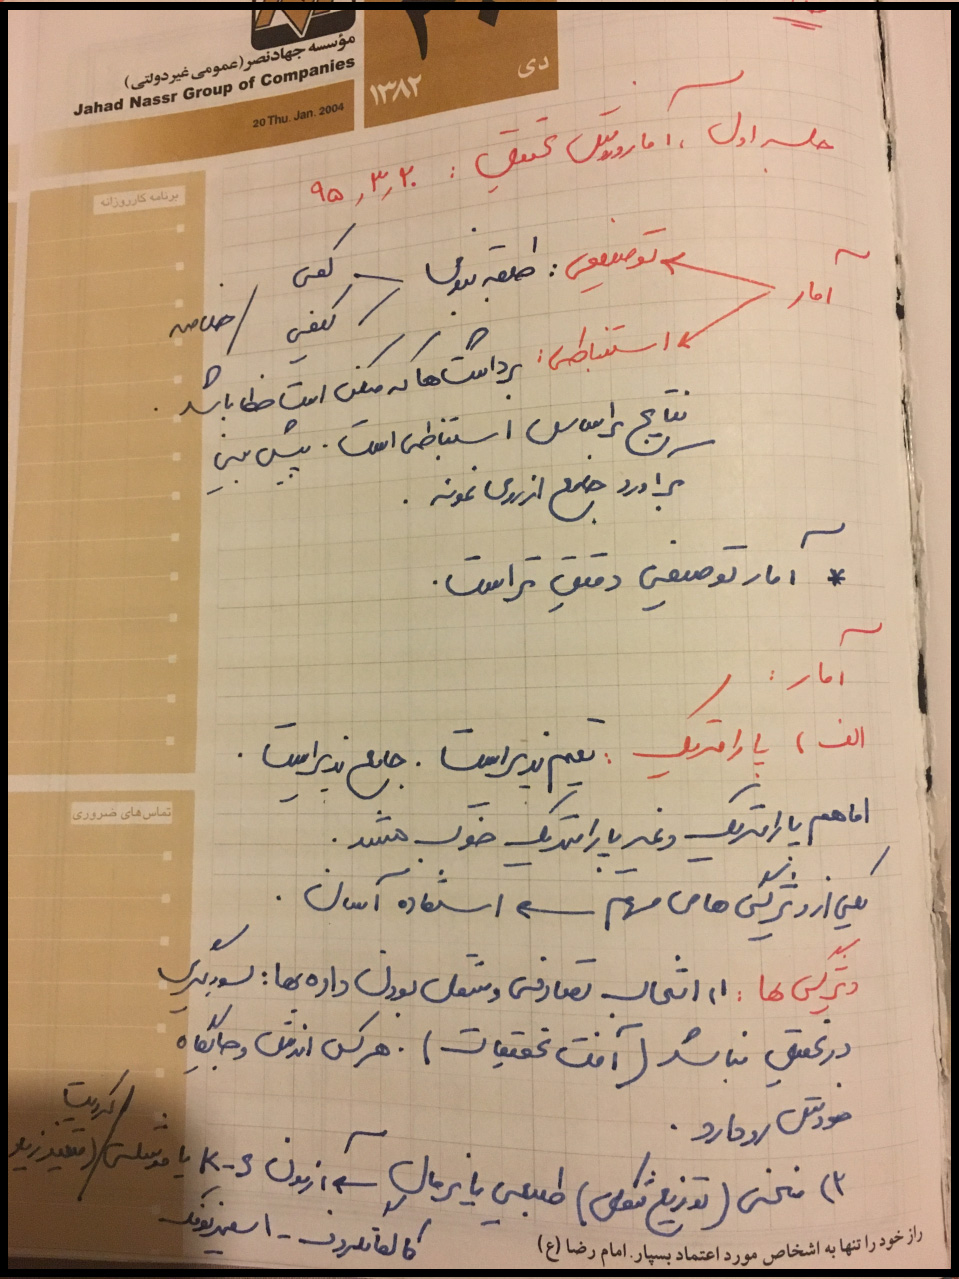 ۳۰
دی
۱۳۸۲
مؤسسه جهادنصر(عمومی غیردولتی)
Jahad Nassr Group of Companies
20 Thu. Jan. 2004
جلسه اول، آمار و روش تحقیق: ۹۵٫۳٫۲۰
برنامه کار روزانه
آمار
توصیفی: طبقه بندی
کمی
کیفی
خلاصه
استنباطی: برداشت‌ها که ممکن است خطا باشد.
نتایج بر اساس استنباطی است. پیش بینی
برآورد جامع از روی نمونه.
* آمار توصیفی دقیق تر است.
آمار:
الف) پارامتریک: تعمیم پذیر است. جامع پذیر است.
تماس‌های ضروری
اما هم پارامتریک و غیر پارامتریک خوب هستند.
یکی از ویژگی های مهم ← استفاده آسان.
ویژگی ها: ۱) انتخاب تصادفی و مستقل بودن داده ها: سوگیری
در تحقیق نباشد (آفت تحقیقات). هرکس ارزش و جایگاه
خودش رو دارد.
۲) منحنی (توزیع شکل) طبیعی یا نرمال ← آزمون K-S یا
کالموگروف - اسمیرنوف
راز خود را تنها به اشخاص مورد اعتماد بسپار. امام رضا (ع)